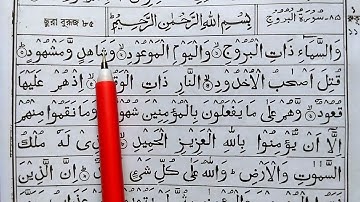 ছুরা বুরূজ ৮৫ بِسْمِ اللّٰهِ الرَّحْمٰنِ الرَّحِيْمِ ٨٥-سورة البروج
وَالسَّمَآءِ ذَاتِ الْبُرُوْجِ وَالْيَوْمِ الْمَوْعُوْدِ وَشَاهِدٍ وَّمَشْهُوْدٍ
قُتِلَ اَصْحٰبُ الْاُخْدُوْدِ النَّارِ ذَاتِ الْوَقُوْدِ اِذْ هُمْ عَلَيْهَا
قُعُوْدٌ وَّهُمْ عَلٰى مَا يَفْعَلُوْنَ بِالْمُؤْمِنِيْنَ شُهُوْدٌ وَمَا نَقَمُوْا مِنْهُمْ
اِلَّآ اَنْ يُّؤْمِنُوْا بِاللّٰهِ الْعَزِيْزِ الْحَمِيْدِ لَهٗ مُلْكُ
السَّمٰوٰتِ وَالْاَرْضِ وَاللّٰهُ عَلٰى كُلِّ شَيْءٍ اِنَّ الَّذِيْنَ